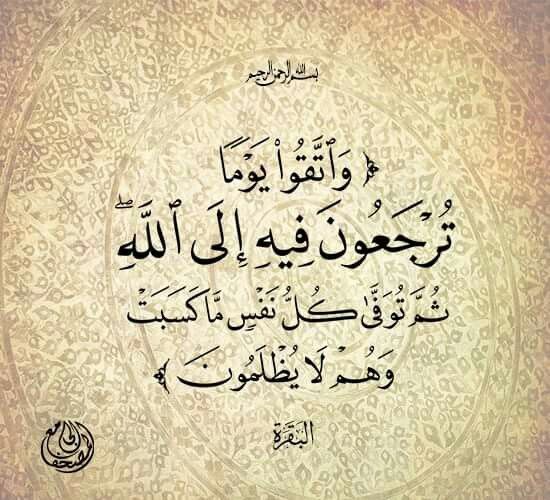 بسم الله الرحمن الرحيم
﴿ وَٱتَّقُوا۟ يَوْمًا
تُرْجَعُونَ فِيهِ إِلَى ٱللَّهِ ۖ
ثُمَّ تُوَفَّىٰ كُلُّ نَفْسٍ مَّا كَسَبَتْ
وَهُمْ لَا يُظْلَمُونَ ﴾
البَقَرَة
المصحف الجامع